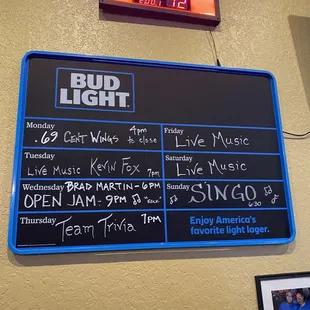 12
BUD
LIGHT
Monday
.69 CENT WINGS 4pm to close
Tuesday
Live Music Kevin Fox 7pm
Wednesday BRAD MARTIN - 6PM
OPEN JAM - 9PM "ROCK"
Thursday
Team Trivia 7PM
Friday
Live Music
Saturday
Live Music
Sunday
SINGO 6:30
Enjoy America's
favorite light lager.